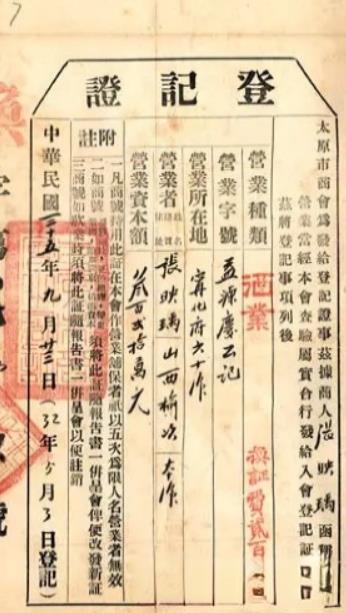 登記證
太原市商會為發給登記證事茲據商人張映瑀函
營業當經本會查驗屬實合行發給入會登記証
茲將登記事項列後
營業種類 酒業
營業字號 益源慶云記
營業所在地 寧化府六十一
營業者 張映瑀 山西榆次 本
營業資本額 貳百貳拾萬元
換証費貳百
附註
一凡商號持用此証在本會作營業舖保者祇以五次為限人名營業者無效
二如商號 須將此証隨報告書一併呈會俾便改發新証
三商號如歇業時須將此證隨報告書一併呈會以便註銷
中華民國三十五年九月廿三日(32年5月3日登記)
號